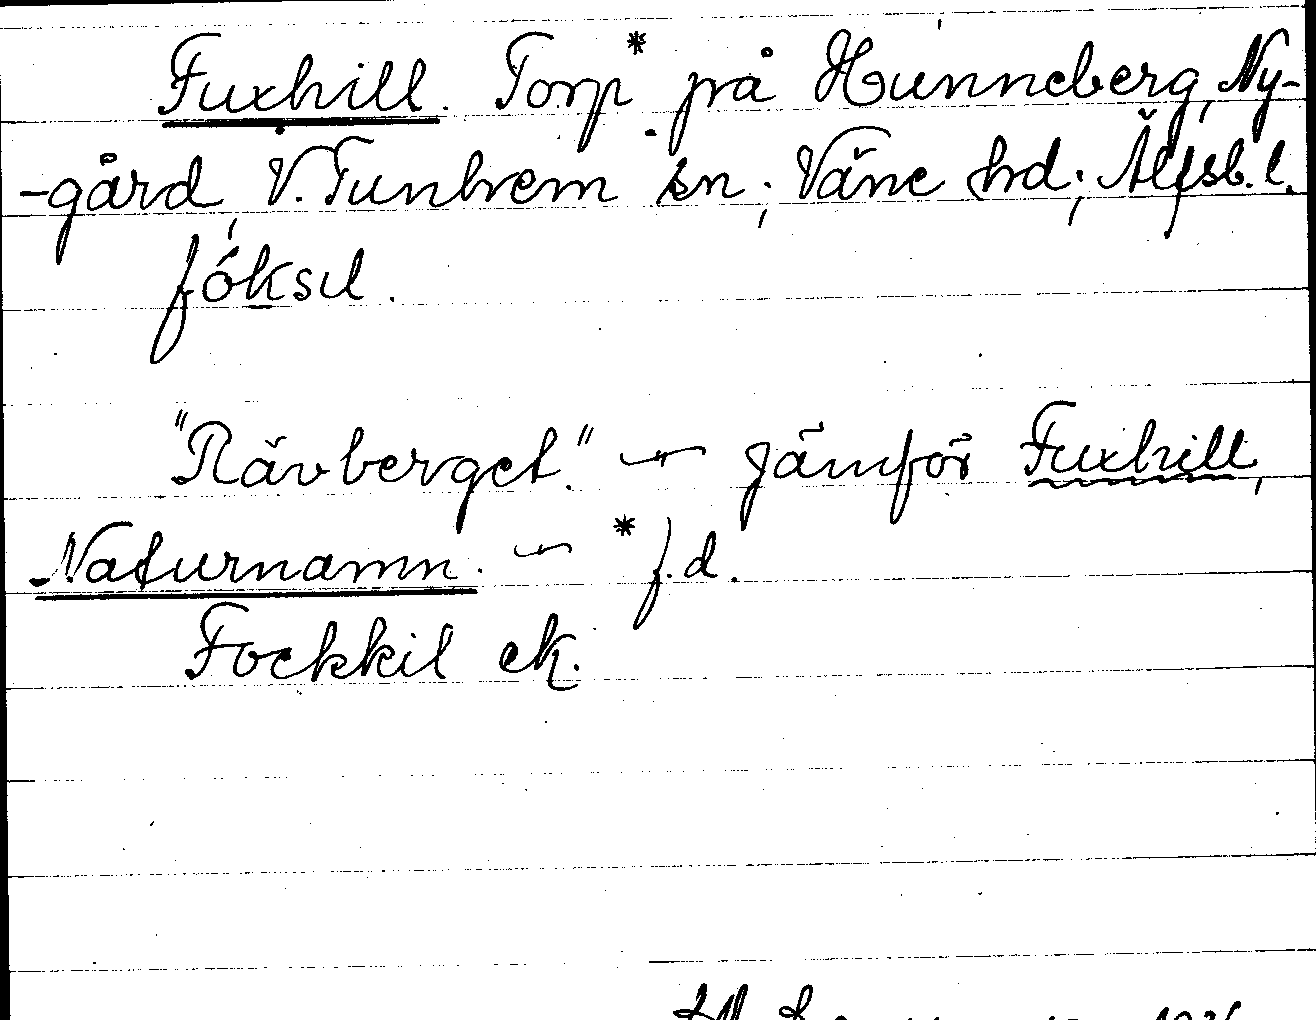 Fuxhill. Torp* på Hunneberg, Ny-
-gård, V. Tunhem sn; Väne hd; Älfsb. l.
fóksıl.
"Rävberget." — Jämför Fuxhill,
Naturnamn. — * f.d.
Fockkil ek.